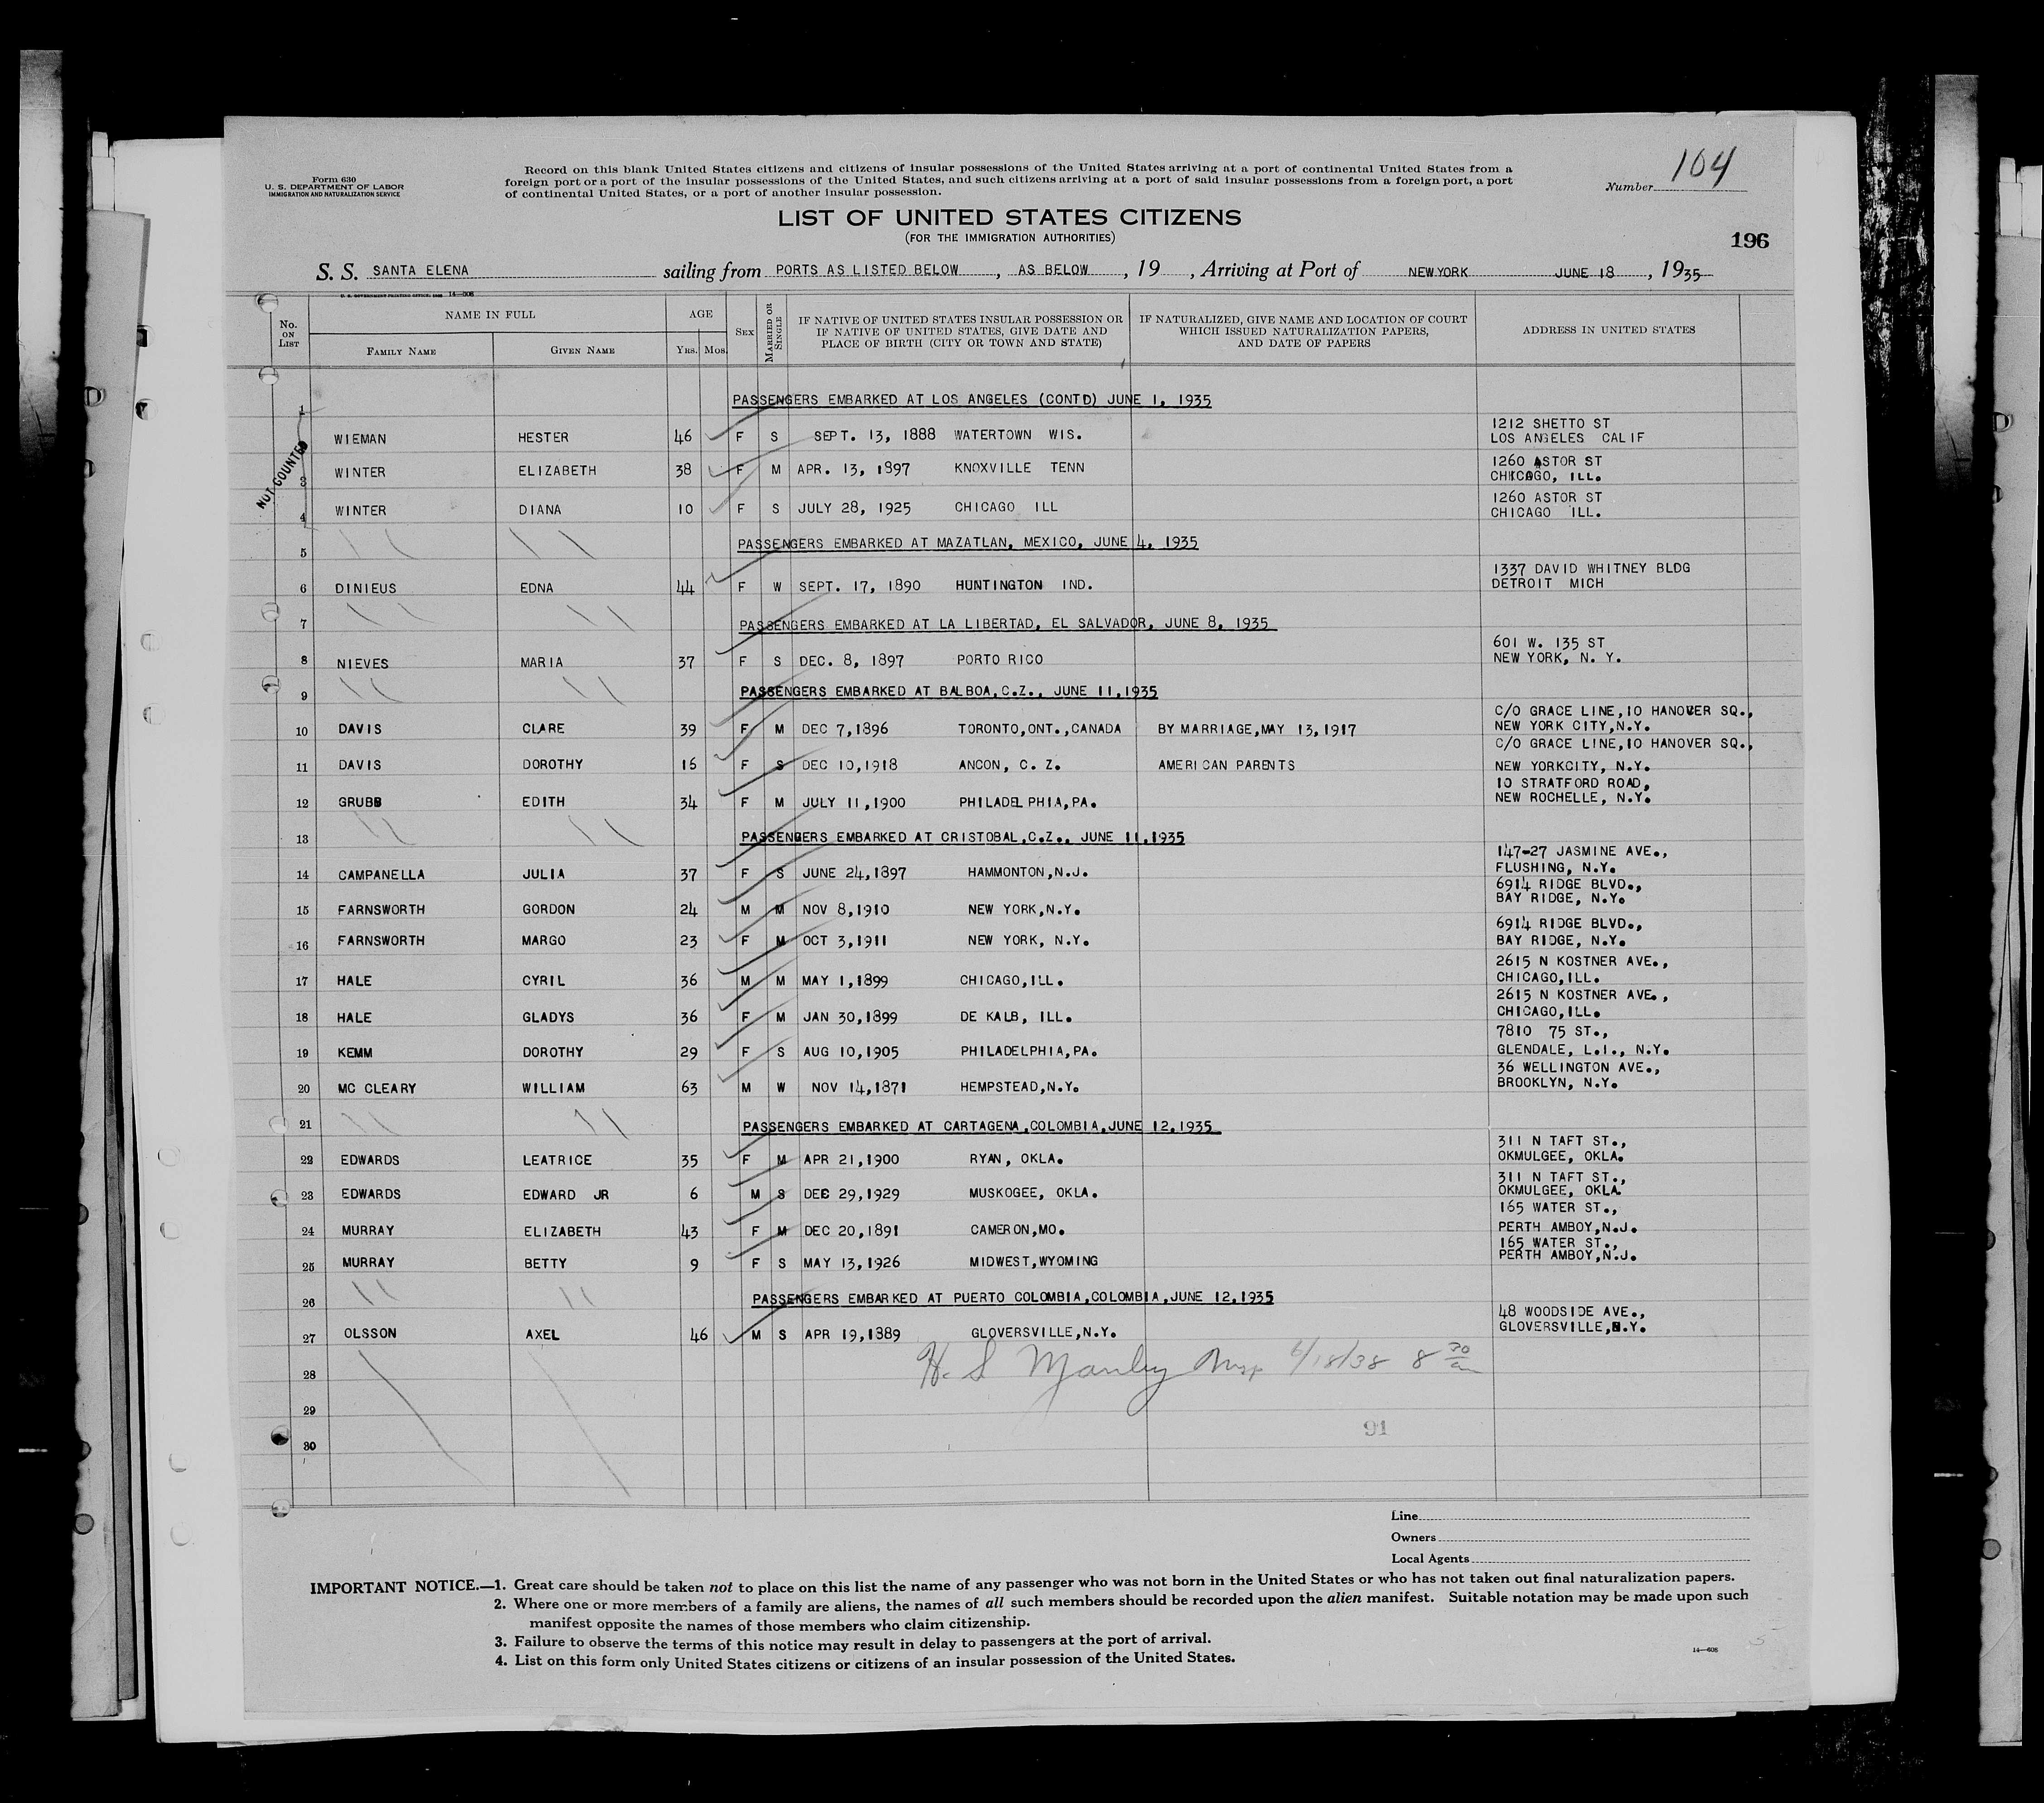 Form 630
U. S. DEPARTMENT OF LABOR
IMMIGRATION AND NATURALIZATION SERVICE
Record on this blank United States citizens and citizens of insular possessions of the United States arriving at a port of continental United States from a
foreign port or a port of the insular possessions of the United States, and such citizens arriving at a port of said insular possessions from a foreign port, a port
of continental United States, or a port of another insular possession.
Number 104
LIST OF UNITED STATES CITIZENS
(FOR THE IMMIGRATION AUTHORITIES)
196
S. S. SANTA ELENA sailing from PORTS AS LISTED BELOW, AS BELOW, 19 , Arriving at Port of NEW YORK JUNE 18, 1935
U. S. GOVERNMENT PRINTING OFFICE: 14—608
No. ON LIST
NAME IN FULL
FAMILY NAME GIVEN NAME
AGE
YRS. MOS.
SEX
MARRIED OR SINGLE
IF NATIVE OF UNITED STATES INSULAR POSSESSION OR
IF NATIVE OF UNITED STATES, GIVE DATE AND
PLACE OF BIRTH (CITY OR TOWN AND STATE)
IF NATURALIZED, GIVE NAME AND LOCATION OF COURT
WHICH ISSUED NATURALIZATION PAPERS,
AND DATE OF PAPERS
ADDRESS IN UNITED STATES
NOT COUNTED
1 PASSENGERS EMBARKED AT LOS ANGELES (CONTD) JUNE 1, 1935
WIEMAN HESTER 46 F S SEPT. 13, 1888 WATERTOWN WIS. 1212 SHETTO ST
LOS ANGELES CALIF
3 WINTER ELIZABETH 38 F M APR. 13, 1897 KNOXVILLE TENN 1260 ASTOR ST
CHICAGO, ILL.
4 WINTER DIANA 10 F S JULY 28, 1925 CHICAGO ILL 1260 ASTOR ST
CHICAGO ILL.
5 PASSENGERS EMBARKED AT MAZATLAN, MEXICO, JUNE 4, 1935
6 DINIEUS EDNA 44 F W SEPT. 17, 1890 HUNTINGTON IND. 1337 DAVID WHITNEY BLDG
DETROIT MICH
7 PASSENGERS EMBARKED AT LA LIBERTAD, EL SALVADOR, JUNE 8, 1935
8 NIEVES MARIA 37 F S DEC. 8, 1897 PORTO RICO 601 W. 135 ST
NEW YORK, N. Y.
9 PASSENGERS EMBARKED AT BALBOA, C.Z., JUNE 11,1935
10 DAVIS CLARE 39 F M DEC 7,1896 TORONTO,ONT.,CANADA BY MARRIAGE,MAY 13,1917 C/O GRACE LINE,10 HANOVER SQ.,
NEW YORK CITY,N.Y.
11 DAVIS DOROTHY 16 F S DEC 10,1918 ANCON, C. Z. AMERICAN PARENTS C/O GRACE LINE,10 HANOVER SQ.,
NEW YORKCITY, N.Y.
12 GRUBB EDITH 34 F M JULY 11,1900 PHILADELPHIA,PA. 10 STRATFORD ROAD,
NEW ROCHELLE, N.Y.
13 PASSENGERS EMBARKED AT CRISTOBAL,C.Z., JUNE 11,1935
14 CAMPANELLA JULIA 37 F S JUNE 24,1897 HAMMONTON,N.J. 147-27 JASMINE AVE.,
FLUSHING, N.Y.
15 FARNSWORTH GORDON 24 M M NOV 8,1910 NEW YORK,N.Y. 6914 RIDGE BLVD.,
BAY RIDGE, N.Y.
16 FARNSWORTH MARGO 23 F M OCT 3,1911 NEW YORK, N.Y. 6914 RIDGE BLVD.,
BAY RIDGE, N.Y.
17 HALE CYRIL 36 M M MAY 1,1899 CHICAGO,ILL. 2615 N KOSTNER AVE.,
CHICAGO,ILL.
18 HALE GLADYS 36 F M JAN 30,1899 DE KALB, ILL. 2615 N KOSTNER AVE.,
CHICAGO,ILL.
19 KEMM DOROTHY 29 F S AUG 10,1905 PHILADELPHIA,PA. 7810 75 ST.,
GLENDALE, L.I., N.Y.
20 MC CLEARY WILLIAM 63 M W NOV 14,1871 HEMPSTEAD,N.Y. 36 WELLINGTON AVE.,
BROOKLYN, N.Y.
21 PASSENGERS EMBARKED AT CARTAGENA,COLOMBIA,JUNE 12,1935
22 EDWARDS LEATRICE 35 F M APR 21,1900 RYAN, OKLA. 311 N TAFT ST.,
OKMULGEE, OKLA.
23 EDWARDS EDWARD JR 6 M S DEC 29,1929 MUSKOGEE, OKLA. 311 N TAFT ST.,
OKMULGEE, OKLA.
24 MURRAY ELIZABETH 43 F M DEC 20,1891 CAMERON,MO. 165 WATER ST.,
PERTH AMBOY,N.J.
25 MURRAY BETTY 9 F S MAY 13,1926 MIDWEST,WYOMING 165 WATER ST.,
PERTH AMBOY,N.J.
26 PASSENGERS EMBARKED AT PUERTO COLOMBIA,COLOMBIA,JUNE 12,1935
27 OLSSON AXEL 46 M S APR 19,1889 GLOVERSVILLE,N.Y. 48 WOODSIDE AVE.,
GLOVERSVILLE,N.Y.
28 H. S Manley Insp 6/18/38 8 30 am
29
30
91
Line
Owners
Local Agents
IMPORTANT NOTICE.—1. Great care should be taken not to place on this list the name of any passenger who was not born in the United States or who has not taken out final naturalization papers.
2. Where one or more members of a family are aliens, the names of all such members should be recorded upon the alien manifest. Suitable notation may be made upon such
manifest opposite the names of those members who claim citizenship.
3. Failure to observe the terms of this notice may result in delay to passengers at the port of arrival.
4. List on this form only United States citizens or citizens of an insular possession of the United States.
14—608
5